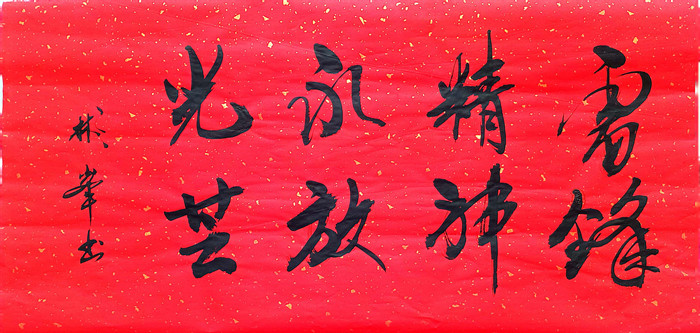 雷锋
精神
永放
光芒
彬峰书